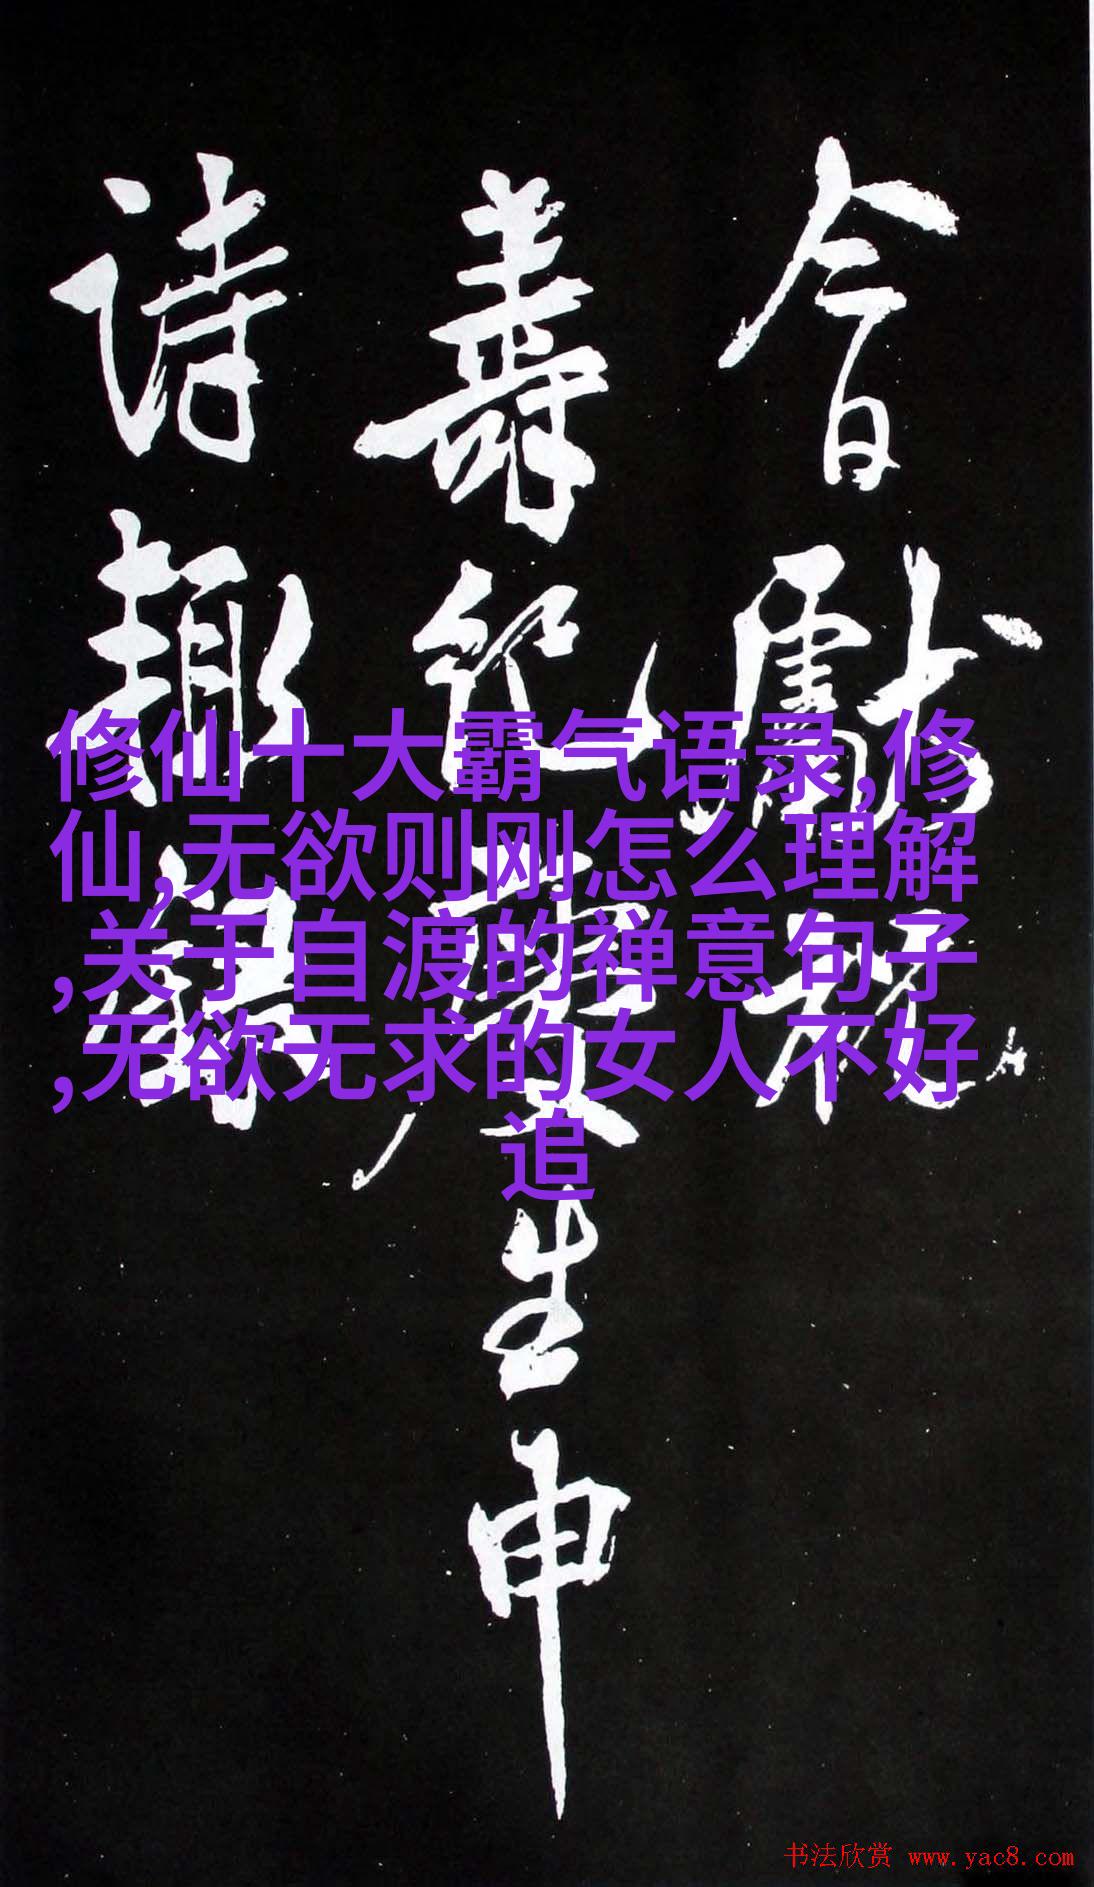 今日獻
壽慶生申
詩趣
修仙十大霸气语录,修
仙,无欲则刚怎么理解
,关于自渡的禅意句子
,无欲无求的女人不好
追
书法欣赏 www.yac8.com